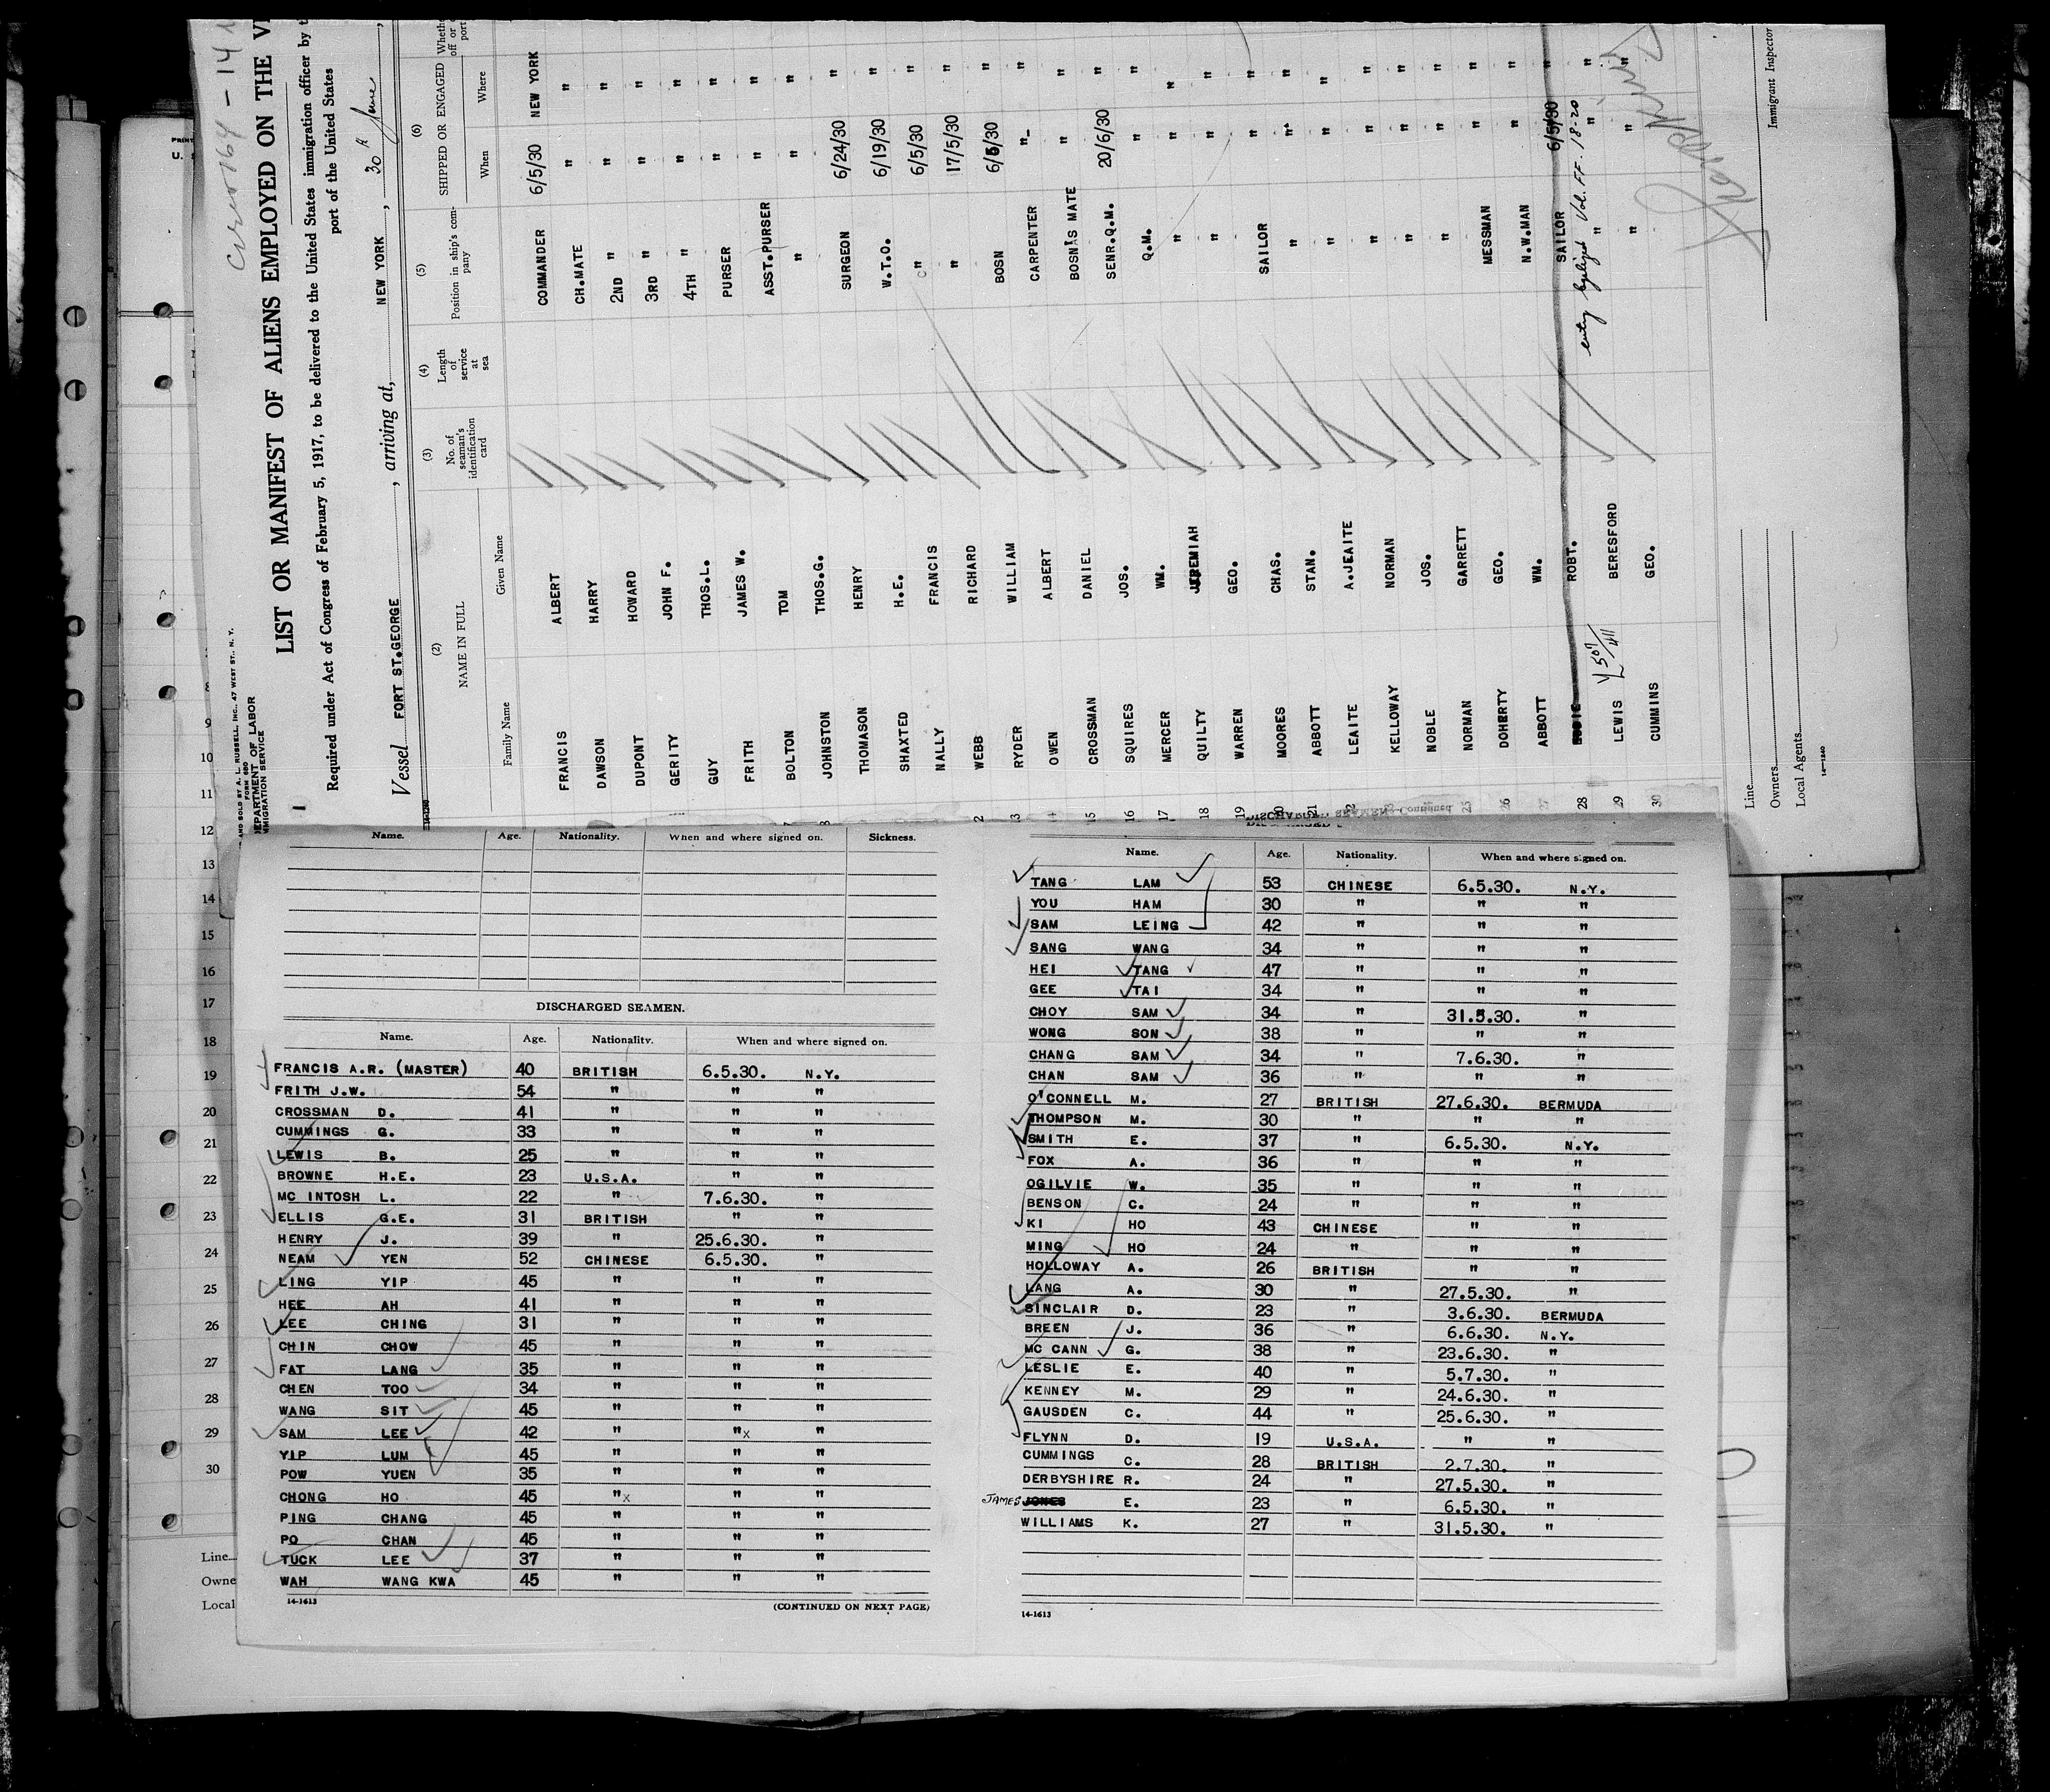 LIST OR MANIFEST OF ALIENS EMPLOYED ON THE
Required under Act of Congress of February 5, 1917, to be delivered to the United States immigration officer by
port of the United States
AND SOLD BY A. L. RUSSELL, INC., 47 WEST ST., N. Y.
FORM 680
DEPARTMENT OF LABOR
IMMIGRATION SERVICE
Vessel FORT ST.GEORGE , arriving at, NEW YORK , 30th June ,
(2) (3) (4) (5) (6)
NAME IN FULL No. of seaman's identification card Length of service at sea Position in ship's company SHIPPED OR ENGAGED
Family Name Given Name When Where
FRANCIS ALBERT COMMANDER 6/5/30 NEW YORK
DAWSON HARRY CH.MATE " "
DUPONT HOWARD 2ND " " "
GERITY JOHN F. 3RD " " "
GUY THOS.L. 4TH " " "
FRITH JAMES W. PURSER " "
BOLTON TOM ASST.PURSER " "
JOHNSTON THOS.G. " " "
THOMASON HENRY SURGEON 6/24/30 "
SHAXTED H.E. W.T.O. 6/19/30 "
NALLY FRANCIS " 6/5/30 "
WEBB RICHARD " 17/5/30 "
13 RYDER WILLIAM BOSN 6/5/30 "
14 OWEN ALBERT CARPENTER " "
15 CROSSMAN DANIEL BOSNS MATE " "
16 SQUIRES JOS. SENR.Q.M. 20/6/30 "
17 MERCER WM. Q.M. " "
18 QUILTY JEREMIAH " " "
19 WARREN GEO. " " "
20 MOORES CHAS. SAILOR " "
21 ABBOTT STAN. " " "
22 LEAITE A.JEAITE " " "
KELLOWAY NORMAN " " "
NOBLE JOS. " " "
25 NORMAN GARRETT " " "
26 DOHERTY GEO. MESSMAN " "
27 ABBOTT WM. N.W.MAN " "
28 ROBT. SAILOR 6/5/30 "
29 LEWIS BERESFORD " " "
30 CUMMINS GEO. " " "
Line
Owners
Local Agents
Immigrant Inspector
14—1240
Name. Age. Nationality. When and where signed on. Sickness.
DISCHARGED SEAMEN.
Name. Age. Nationality. When and where signed on.
FRANCIS A.R. (MASTER) 40 BRITISH 6.5.30. N.Y.
FRITH J.W. 54 " " "
CROSSMAN D. 41 " " "
CUMMINGS G. 33 " " "
LEWIS B. 25 " " "
BROWNE H.E. 23 U.S.A. " "
MC INTOSH L. 22 " 7.6.30. "
ELLIS G.E. 31 BRITISH " "
HENRY J. 39 " 25.6.30. "
NEAM YEN 52 CHINESE 6.5.30. "
LING YIP 45 " " "
HEE AH 41 " " "
LEE CHING 31 " " "
CHIN CHOW 45 " " "
FAT LANG 35 " " "
CHEN TOO 34 " " "
WANG SIT 45 " " "
SAM LEE 42 " "x "
YIP LUM 45 " " "
POW YUEN 35 " " "
CHONG HO 45 "x " "
PING CHANG 45 " " "
PO CHAN 45 " " "
TUCK LEE 37 " " "
WAH WANG KWA 45 " " "
14-1613 (CONTINUED ON NEXT PAGE)
Name. Age. Nationality. When and where signed on.
TANG LAM 53 CHINESE 6.5.30. N.Y.
YOU HAM 30 " " "
SAM LEING 42 " " "
SANG WANG 34 " " "
HEI TANG 47 " " "
GEE TAI 34 " " "
CHOY SAM 34 " 31.5.30. "
WONG SON 38 " " "
CHANG SAM 34 " 7.6.30. "
CHAN SAM 36 " " "
O'CONNELL M. 27 BRITISH 27.6.30. BERMUDA
THOMPSON M. 30 " " "
SMITH E. 37 " 6.5.30. N.Y.
FOX A. 36 " " "
OGILVIE W. 35 " " "
BENSON C. 24 " " "
KI HO 43 CHINESE " "
MING HO 24 " " "
HOLLOWAY A. 26 BRITISH " "
LANG A. 30 " 27.5.30. "
SINCLAIR D. 23 " 3.6.30. BERMUDA
BREEN J. 36 " 6.6.30. N.Y.
MC CANN G. 38 " 23.6.30. "
LESLIE E. 40 " 5.7.30. "
KENNEY M. 29 " 24.6.30. "
GAUSDEN C. 44 " 25.6.30. "
FLYNN D. 19 U.S.A. " "
CUMMINGS C. 28 BRITISH 2.7.30. "
DERBYSHIRE R. 24 " 27.5.30. "
JAMES JONES E. 23 " 6.5.30. "
WILLIAMS K. 27 " 31.5.30. "
14-1613
9
10
11
12
13
14
15
16
17
18
19
20
21
22
23
24
25
26
27
28
29
30
Line
Owne
Local